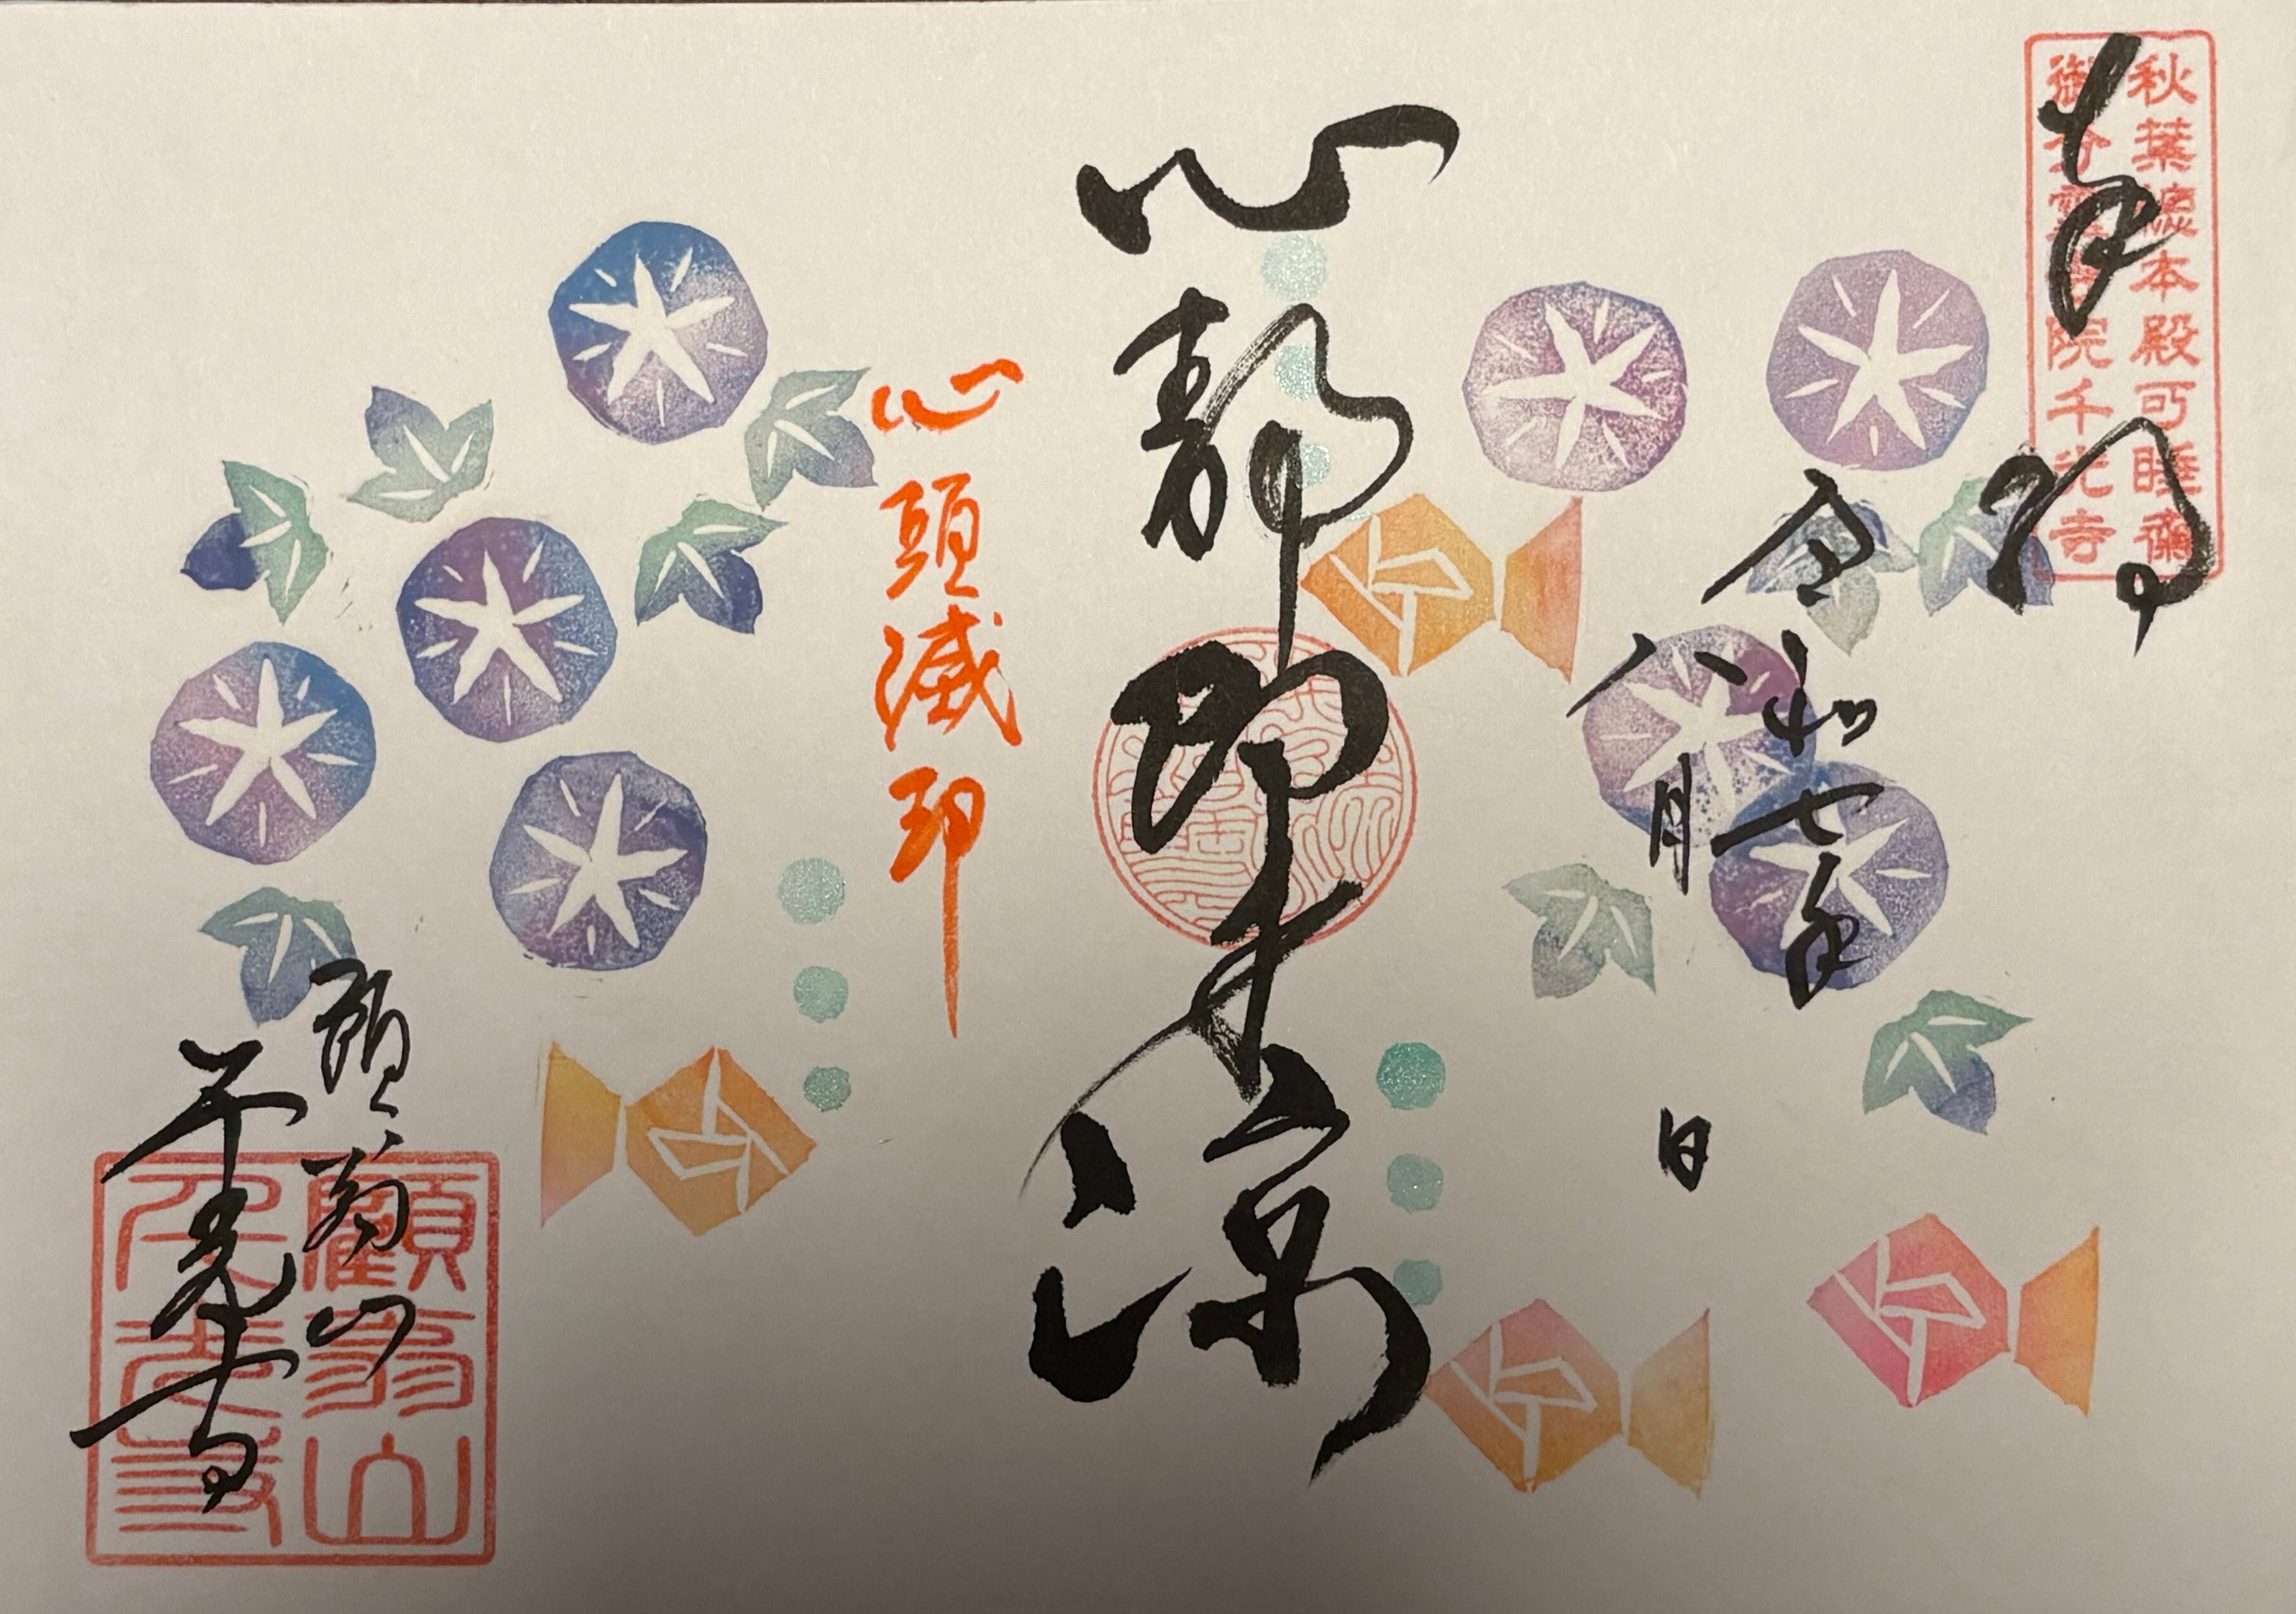 秋葉總本殿可睡齋
御分靈院千光寺
奉拝
令和七年
八月 日
心静即身涼
心頭滅却
顧翁山
千光寺
顧翁山
千光寺